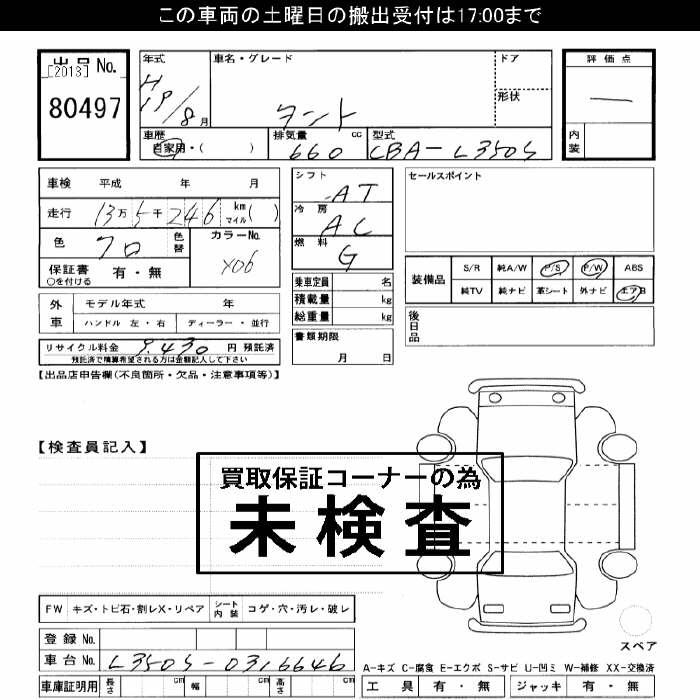 この車両の土曜日の搬出受付は17:00まで
出品 No.
[2013]
80497
年式
H
19/8月
車名・グレード
タント
ドア
形状
評価点
内装
車歴
自家用・( )
排気量 cc
660
型式
CBA-L350S
車検 平成 年 月
走行 13万5千246 km マイル( )
色 クロ 色替
カラーNo.
X06
保証書 有・無
○を付ける
外車 モデル年式 年
ハンドル 左・右 ディーラー・並行
リサイクル料金 9,430円 預託済
預託済で積算希望される方は金額記入して下さい
シフト AT
冷房 AC
燃料 G
乗車定員 名
積載量 kg
総重量 kg
書類期限
月 日
セールスポイント
装備品 S/R 純A/W P/S P/W ABS
純TV 純ナビ 革シート 外ナビ エアB
後日品
【出品店申告欄(不良箇所・欠品・注意事項等)】
【検査員記入】
買取保証コーナーの為
未検査
FW キズ・トビ石・割レX・リペア シート内装 コゲ・穴・汚レ・破レ
登録 No.
車台 No. L350S-0316646
車庫証明用 長さ cm 幅 cm 高さ cm
スペア
A-キズ C-腐食 E-エクボ S-サビ U-凹ミ W-補修 XX-交換済
工具 有・無 ジャッキ 有・無